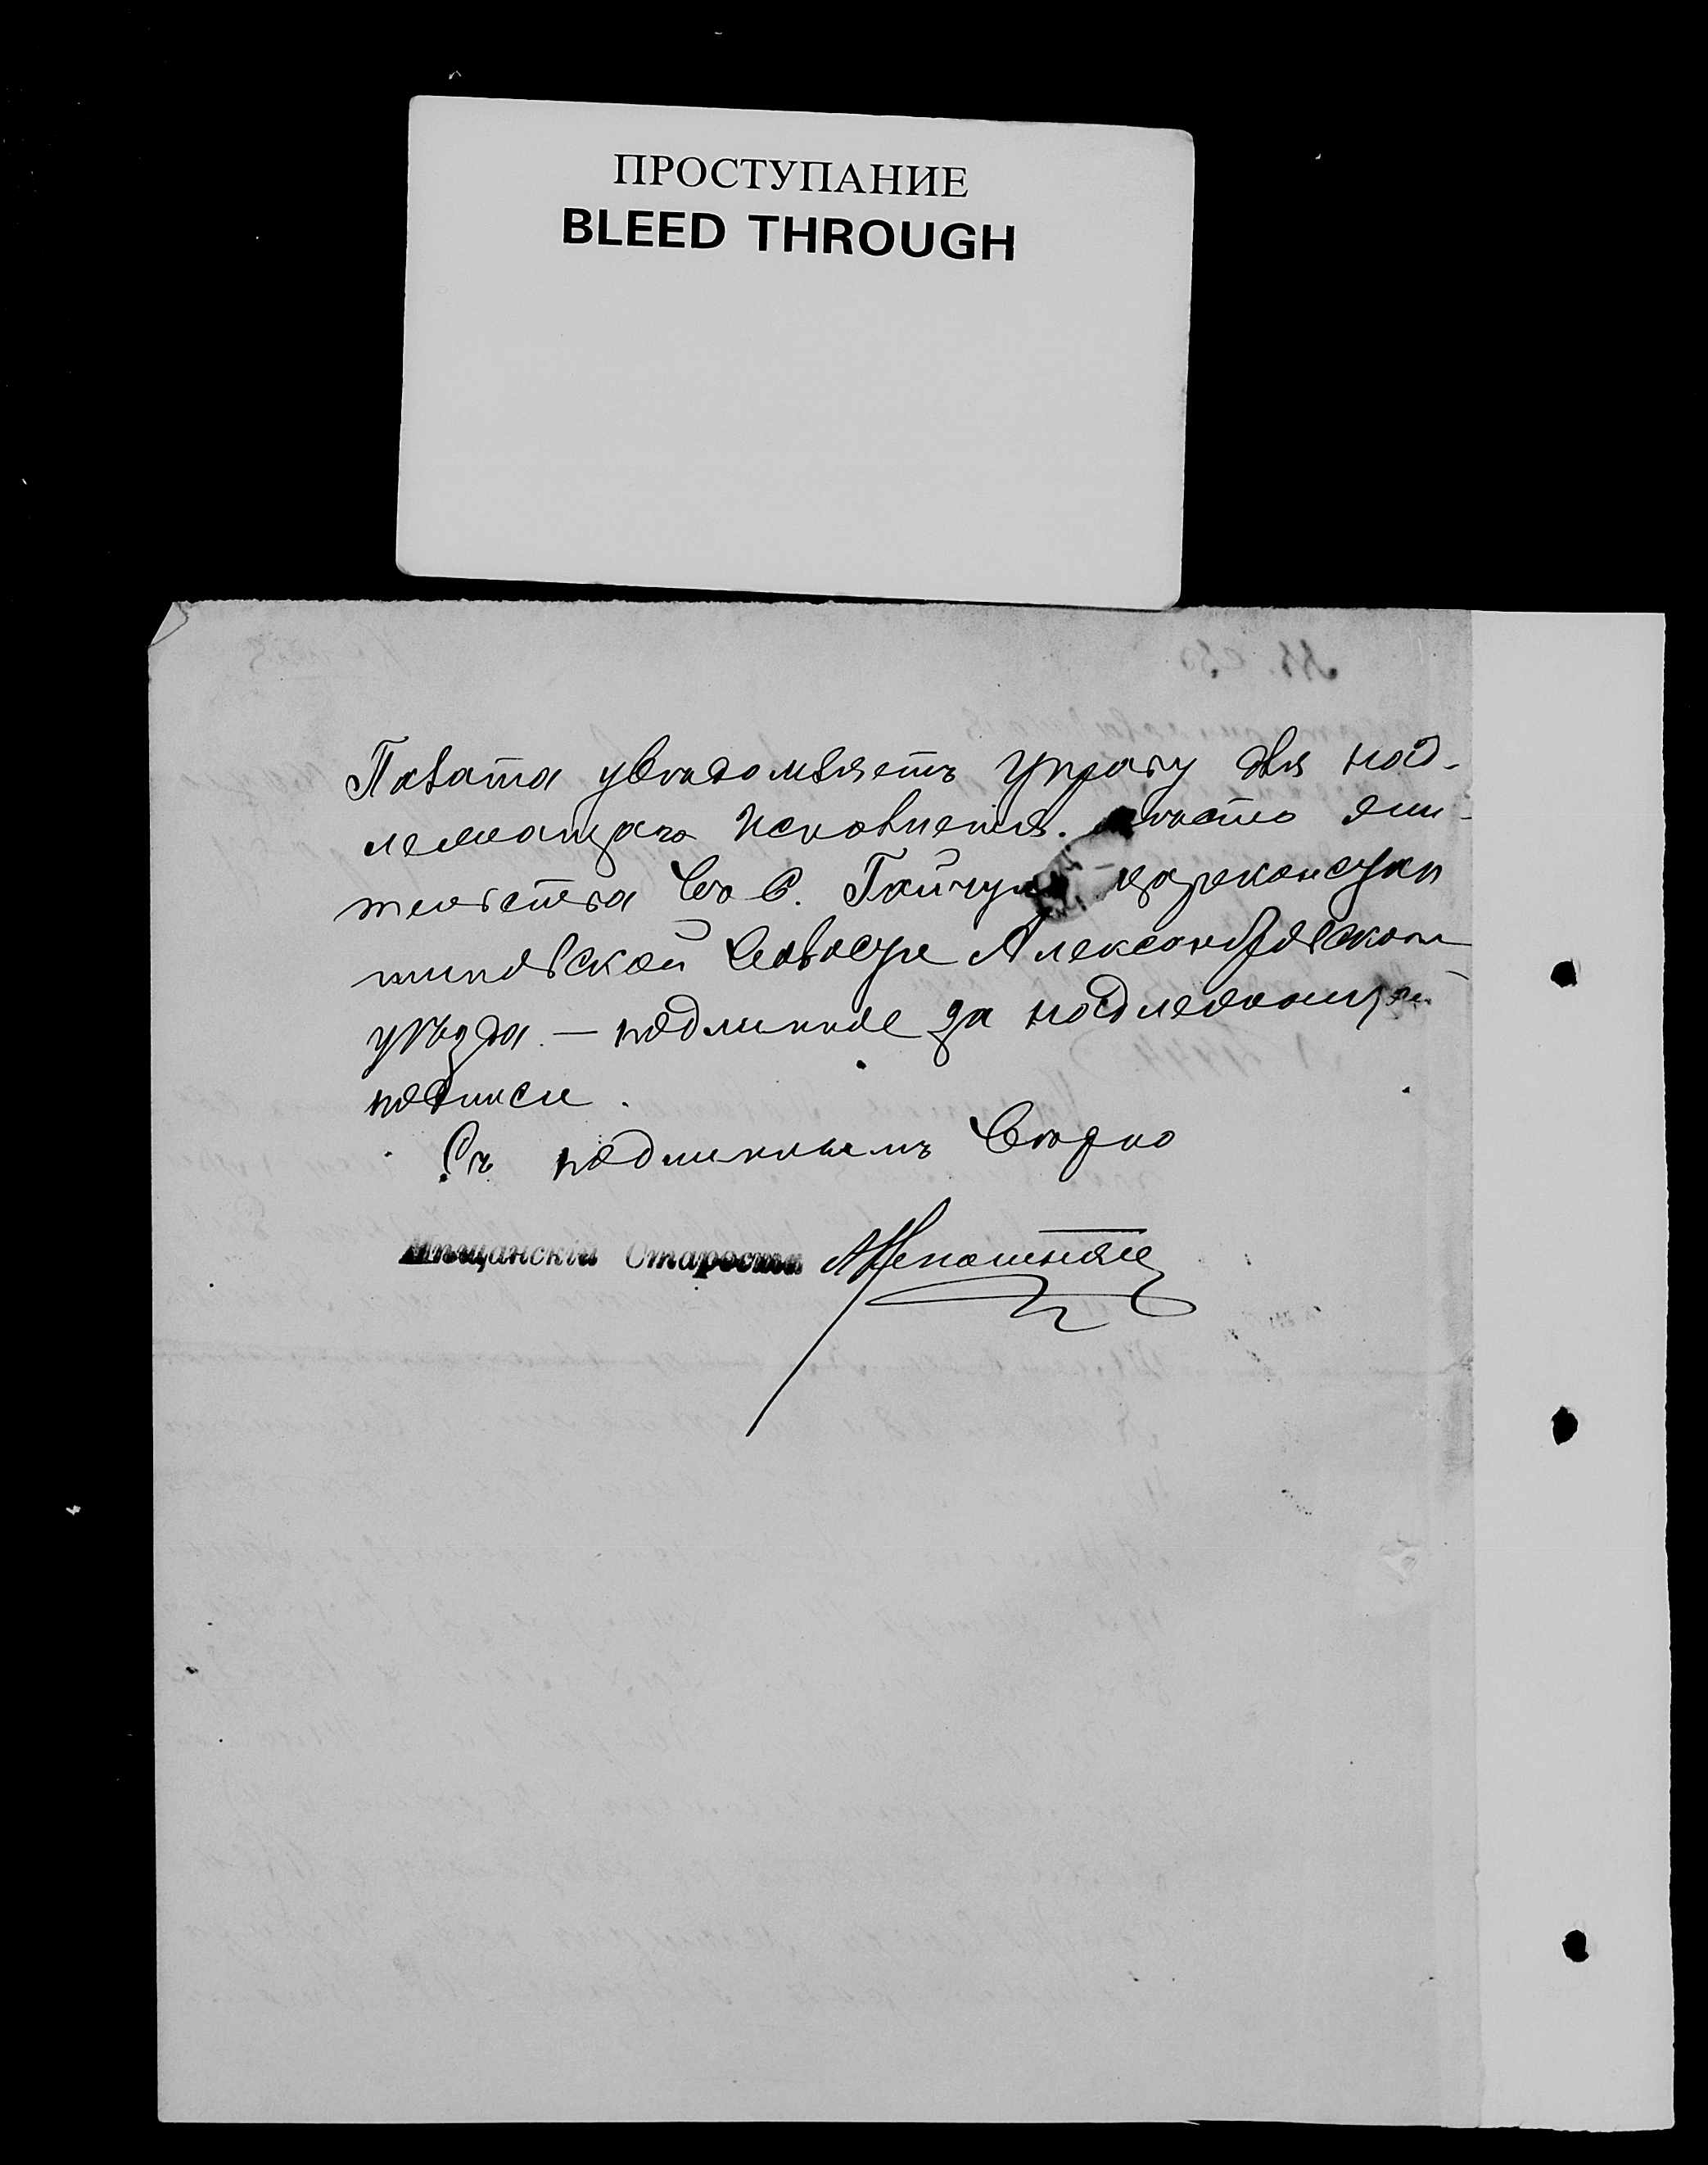 ПРОСТУПАНИЕ
BLEED THROUGH
Палата увѣдомляетъ Управу для над-
лежащаго исполненія. Мѣсто жи-
тельства въ с. Гайчуръ царекон
новской волости Александровскаго
уѣзда. — подлинное за надлежащей
подписи.
Съ подлиннымъ вѣрно
Мѣщанскій Староста